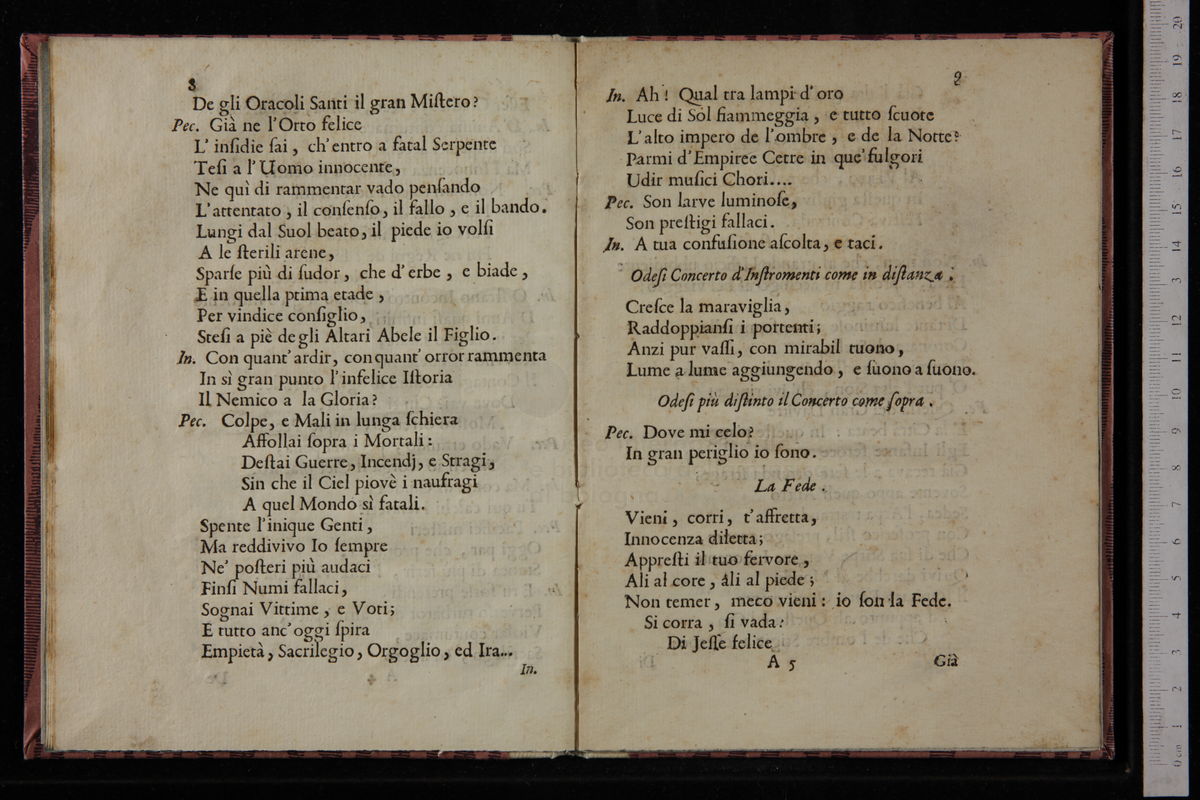 8
De gli Oracoli Santi il gran Miſtero?
Pec. Già ne l'Orto felice
L' inſidie ſai, ch'entro a fatal Serpente
Teſi a l'Uomo innocente,
Ne quì di rammentar vado penſando
L'attentato, il conſenſo, il fallo, e il bando.
Lungi dal Suol beato, il piede io volſi
A le ſterili arene,
Sparſe più di ſudor, che d'erbe, e biade,
E in quella prima etade,
Per vindice conſiglio,
Steſi a piè degli Altari Abele il Figlio.
In. Con quant'ardir, con quant'orror rammenta
In sì gran punto l'infelice Iſtoria
Il Nemico a la Gloria?
Pec. Colpe, e Mali in lunga ſchiera
Affollai ſopra i Mortali:
Deſtai Guerre, Incendj, e Stragi,
Sin che il Ciel piovè i naufragi
A quel Mondo sì fatali.
Spente l'inique Genti,
Ma reddivivo Io ſempre
Ne' poſteri più audaci
Finſi Numi fallaci,
Sognai Vittime, e Voti;
E tutto anc'oggi ſpira
Empietà, Sacrilegio, Orgoglio, ed Ira...
In.
9
In. Ah! Qual tra lampi d'oro
Luce di Sol fiammeggia, e tutto ſcuote
L'alto impero de l'ombre, e de la Notte?
Parmi d'Empiree Cetre in que' fulgori
Udir muſici Chori....
Pec. Son larve luminoſe,
Son preſtigi fallaci.
In. A tua confuſione aſcolta, e taci.
Odeſi Concerto d'Inſtromenti come in diſtanza.
Creſce la maraviglia,
Raddoppianſi i portenti;
Anzi pur vaſſi, con mirabil tuono,
Lume a lume aggiungendo, e ſuono a ſuono.
Odeſi più diſtinto il Concerto come ſopra.
Pec. Dove mi celo?
In gran periglio io ſono.
La Fede.
Vieni, corri, t'affretta,
Innocenza diletta;
Appreſti il tuo fervore,
Ali al core, áli al piede;
Non temer, meco vieni: io ſon la Fede.
Si corra, ſi vada:
Di Jeſſe felice
A 5
Già